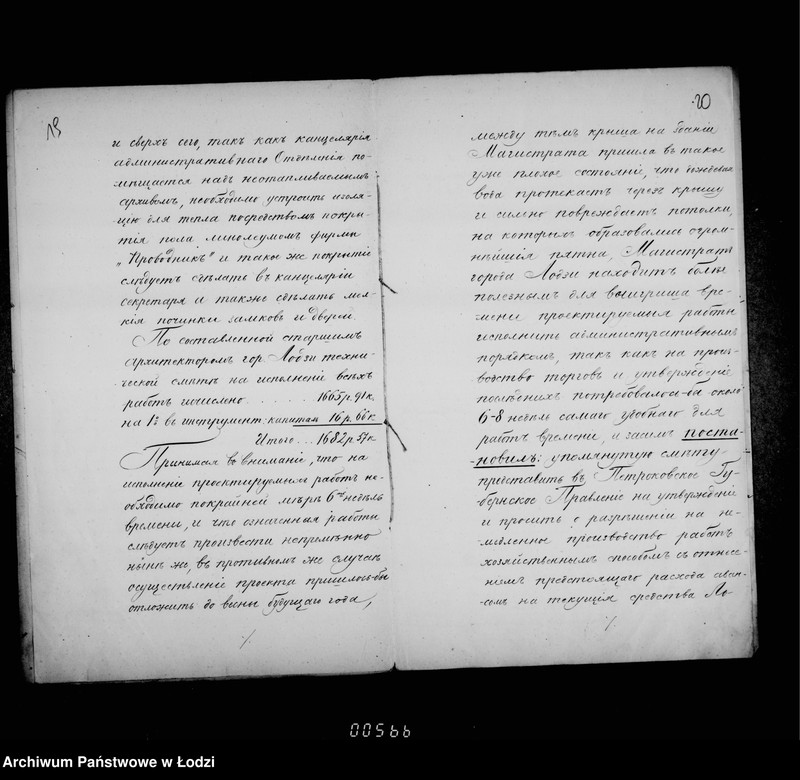 19
и сверхъ сего, такъ какъ канцелярія
административнаго Отдѣленія по-
мѣщается надъ неотапливаемымъ
архивомъ, необходимо устроить изоля-
цію для тепла посредствомъ покры-
тія пола линолеумомъ фирмы
„Проводникъ" и такое же покрытіе
слѣдуетъ сдѣлать въ канцеляріи
секретаря а также сдѣлать мел-
кія починки замковъ и дверей.
По составленной старшимъ
архитекторомъ гор. Лодзи техни-
ческой смѣтѣ на исполненіе всѣхъ
работъ исчислено . . . . . . . 1665 р. 91 к.
на 1% въ инструмент. капиталъ 16 р. 66 к.
Итого . . . 1682 р. 57 к.
Принимая во вниманіе, что на
исполненіе проектируемыхъ работъ не-
обходимо покрайней мѣрѣ 6 недѣль
времени, и что означенныя работы
слѣдуетъ произвести непремѣнно
нынѣ же, въ противномъ же случаѣ
осуществленіе проекта пришлось-бы
отложить до весны будущаго года,
20
между тѣмъ крыша на зданіи
Магистрата пришла въ такое
уже плохое состояніе, что дождевая
вода протекаетъ черезъ крышу
и сильно повреждаетъ потолки,
на которыхъ образовались огром-
нѣйшія пятна, Магистратъ
города Лодзи находитъ болѣе
полезнымъ для выигрыша вре-
мени проектируемыя работы
исполнить административнымъ
порядкомъ, такъ какъ на произ-
водство торговъ и утвержденіе
послѣднихъ потребовалось-бы около
6-8 недѣль самаго удобнаго для
работъ времени, а засимъ поста-
-новилъ: упомянутую смѣту
представить въ Петроковское Гу-
бернское Правленіе на утвержденіе
и просить о разрѣшеніи на не-
медленное производство работъ
хозяйственнымъ способомъ съ отнесе-
ніемъ предстоящаго расхода аван-
-сомъ на текущія средства Ло-
00566
Archiwum Państwowe w Łodzi